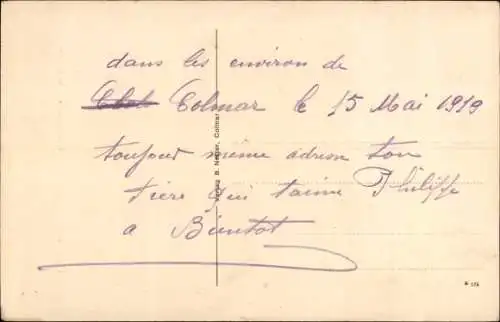 dans les environ de
Colmar le 15 Mai 1919
toujour même adresse ton
frère qui t'aime Philippe
a Bientot
Verlag B. Neger, Colmar